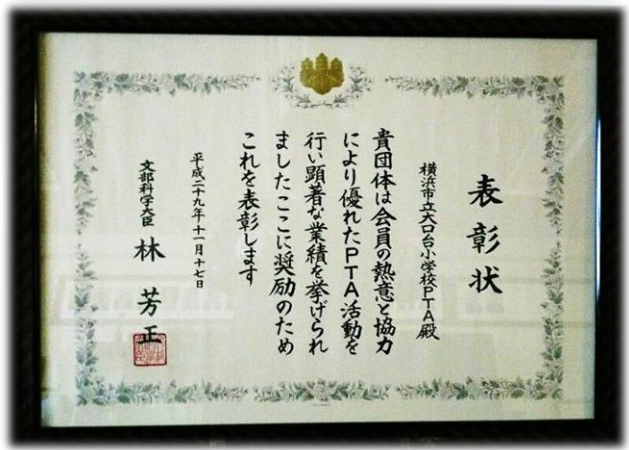 表彰状
横浜市立大口台小学校PTA殿
貴団体は会員の熱意と協力
により優れたPTA活動を
行い顕著な業績を挙げられ
ましたここに奨励のため
これを表彰します
平成二十九年十一月十七日
文部科学大臣 林芳正